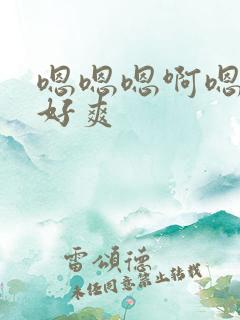 嗯嗯嗯啊嗯
好爽
雷頌德
未经同意禁止转载